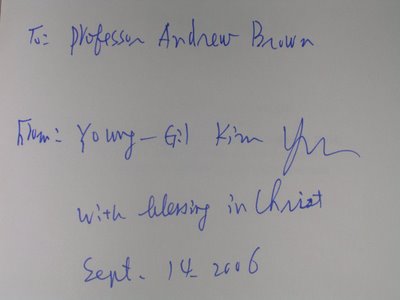 To: Professor Andrew Brown
From: Young-Gil Kim
with blessing in Christ
Sept. 14. 2006